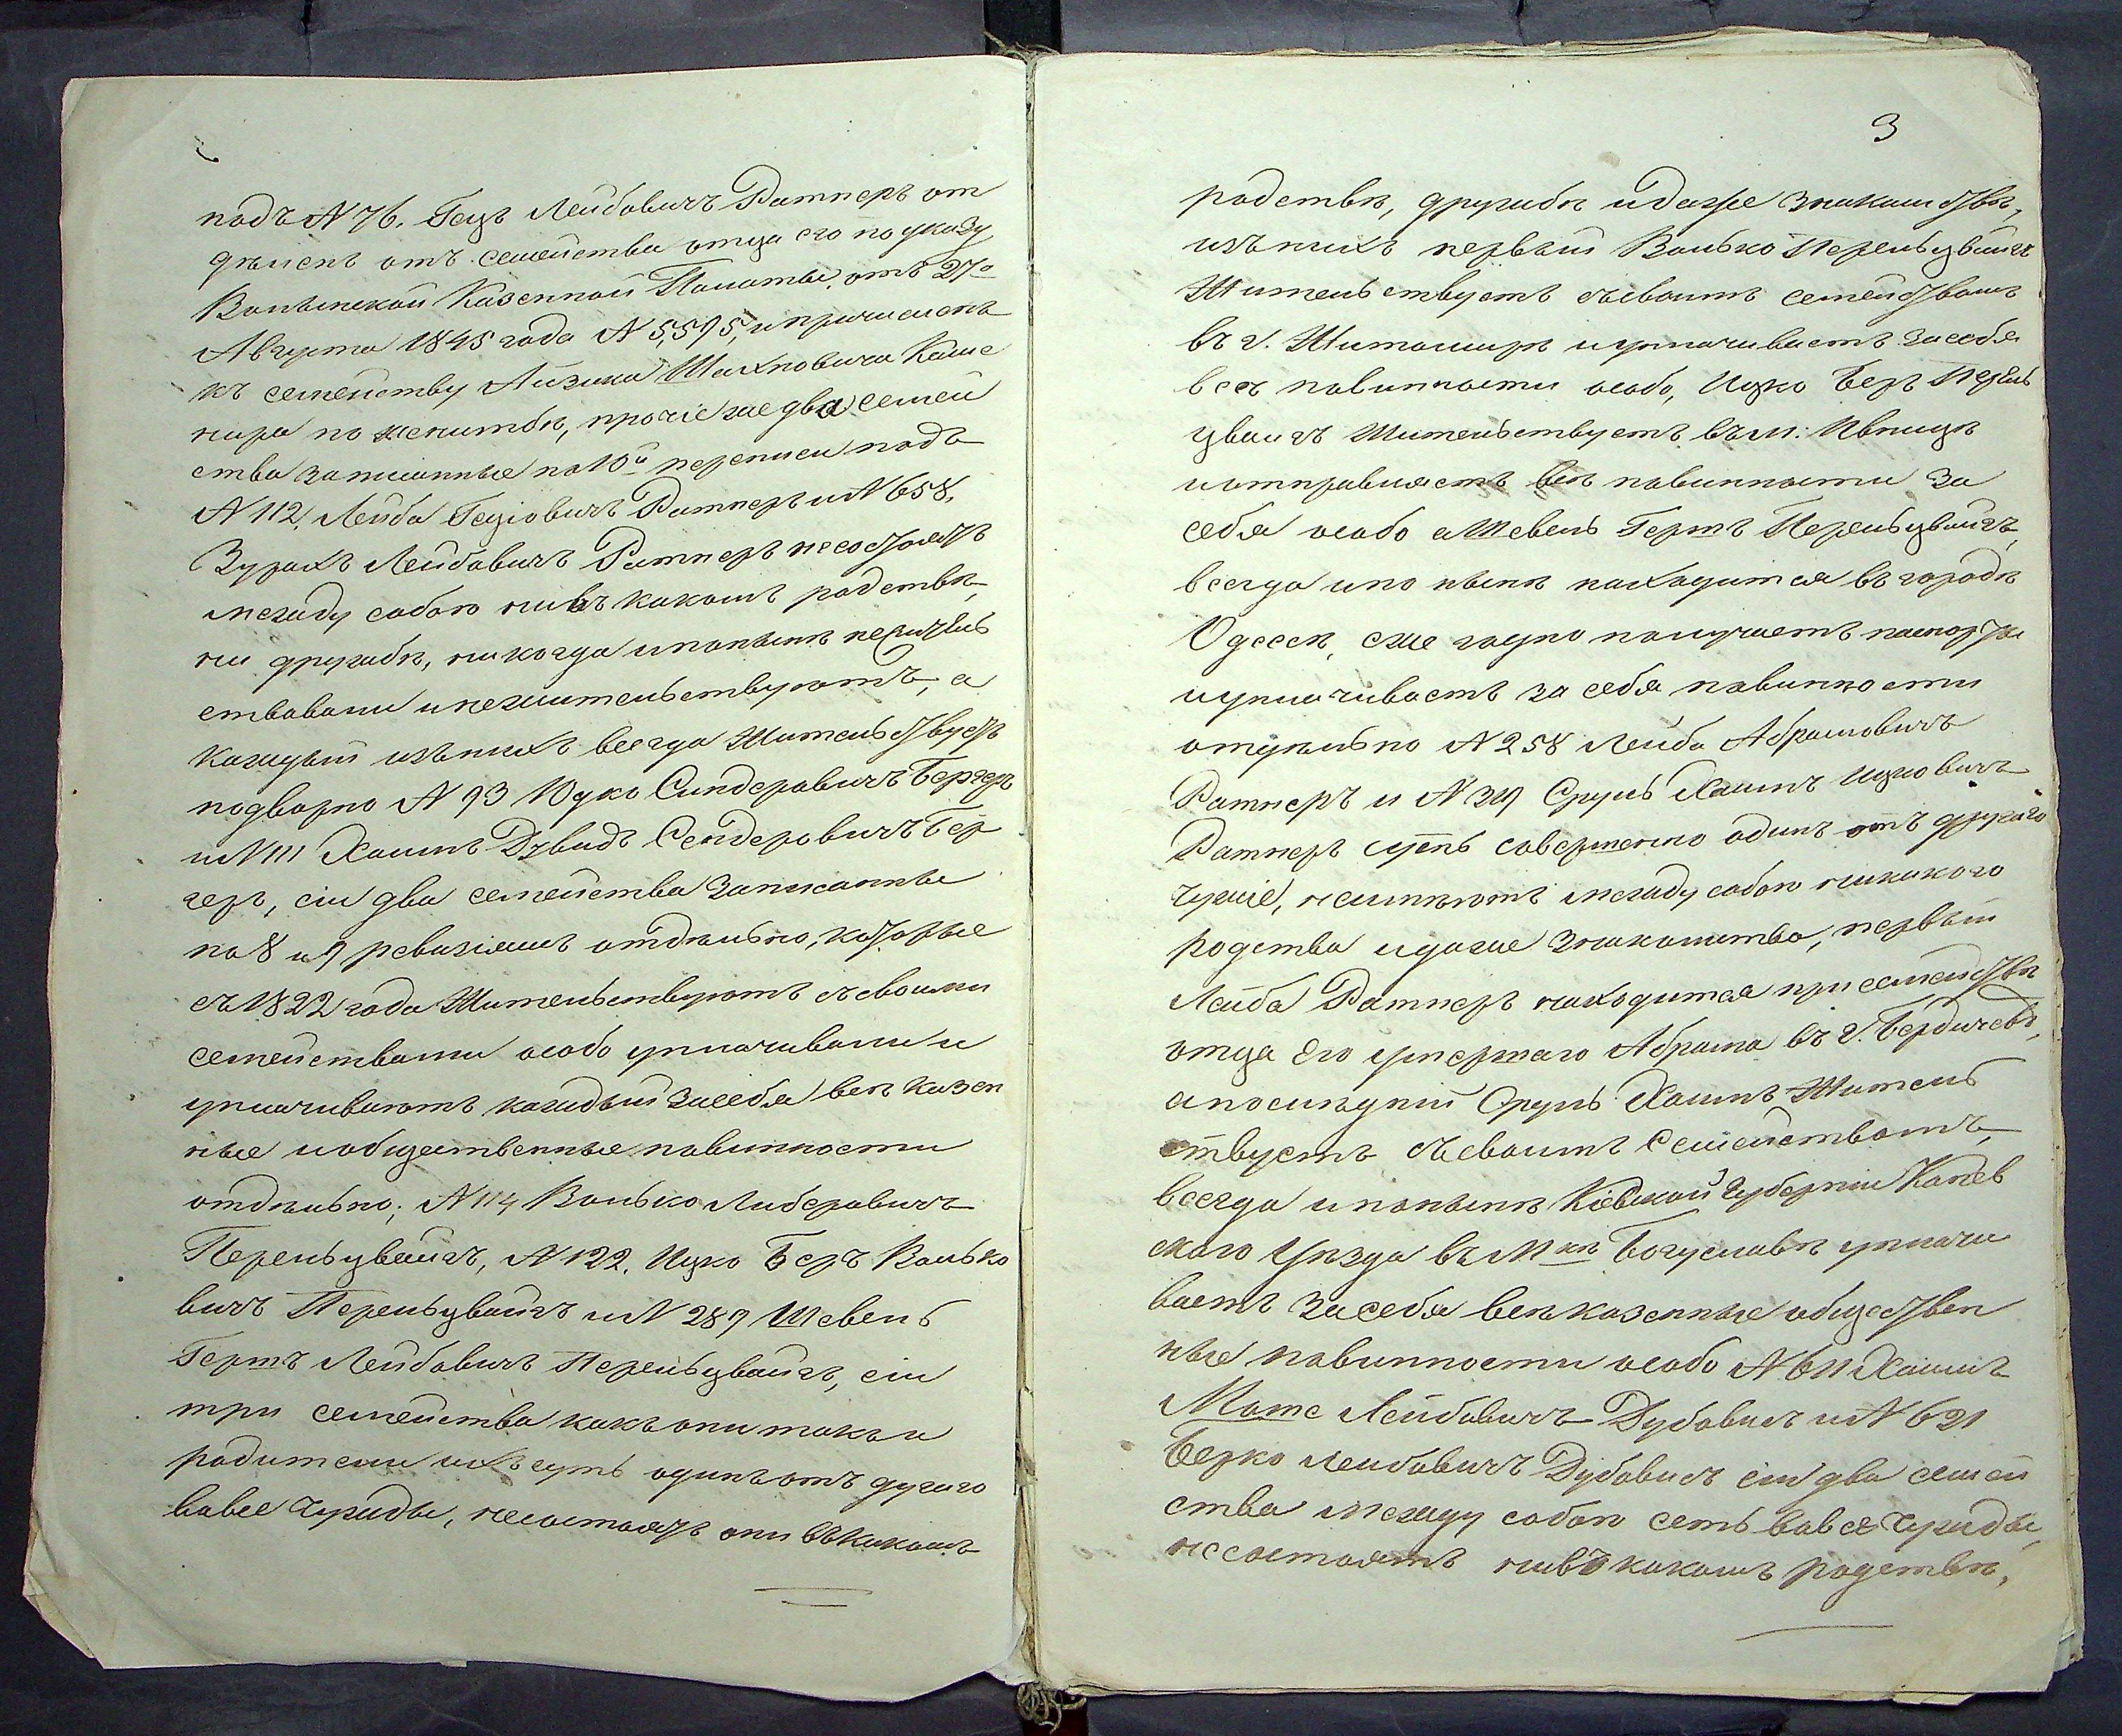 подъ N 76. Гецъ Лейбовичъ Ратнеръ от
дѣленъ отъ семейства отца его по указу
Волынской Казенной Палаты, отъ 27го
Августа 1845 года N 5,595, и причисленъ
къ семейству Айзика Шахновича Каше
нира по женитбѣ, прочіе же два семей
ства записанные по 10й переписи подъ
N 112, Лейба Геціовичъ Ратнеръ и N 658,
Зурахъ Лейбовичъ Ратнеръ несостоятъ
между собою нивъ какомъ родствѣ,
ни дружбѣ, никогда и понынѣ нежитель
ствовали и нежительствуютъ, а
каждый изъ нихъ всегда жительствуетъ
подворно N 93 Юдко Сындеровичъ Бергеръ
и N 111 Хаимъ Дувидъ Сендеровичъ Бер
геръ, сіи два семейства записанные
по 8 и 9 ревизіямъ отдѣльно, которые
съ 1822 года Жительствуютъ съ своими
семействами особо уплачивали и
уплачиваютъ каждый за себя всѣ казен
ные и общественные повинности
отдѣльно; N 114 Волько Либеровичъ
Перельцвейгъ, N 122. Ицко Беръ Волько
вичъ Перельцвайгъ и N 289 Шевель
Гершъ Лейбовичъ Перельцвайгъ, сіи
три семейства какъ они такъ и
родители ихъ суть одинъ отъ дугаго
вовсе чужды, несостоятъ они въ какомъ
3
родствѣ, дружбѣ и даже знакомствѣ,
изъ нихъ первый Волько Перельцвайгъ
Жительствуетъ съ своимъ семействомъ
въ г. Житомирѣ и уплачиваетъ за себя
всѣ повинности особо, Ицко Беръ Перель
цвайгъ Жительствуетъ въ м: Ивницѣ
и отправляетъ всѣ повинности за
себя особо а Шевель Гершъ Перельцвайгъ,
всегда и по нынѣ находится въ городѣ
Одессѣ, еже годно получаетъ паспорты
и уплачиваетъ за себя повинности
отдѣльно N 258 Лейба Абрамовичъ
Ратнеръ и N 319 Сруль Хаимъ Ицковичъ
Ратнеръ суть совершенно одинъ отъ другаго
чужіе, неимѣютъ между собою никакого
родства и даже знакомства, первый
Лейба Ратнеръ находится при семействѣ
отца его умершаго Абрама въ г. Бердичевѣ,
а послѣдній Сруль Хаимъ Житель
ствуетъ съ своимъ Семействомъ,
всегда и понынѣ Кіевской Губерніи Канев
скаго Уѣзда въ Мкѣ Богуславѣ уплачи
ваетъ за себя всѣ казенные обществен
ные повинности особо N 611 Хаимъ
Мотс Лейбовичъ Дубовисъ и N 621
Берко Лейбовичъ Дубовисъ сіи два семей
ства между собою сеть вовсе чужды,
несостоятъ нивъ какомъ родствѣ,